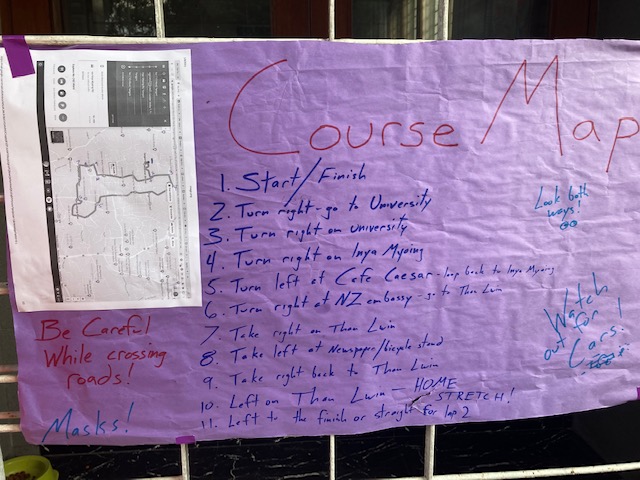 Course Map
1. Start/Finish
2. Turn right - go to University
3. Turn right on University
4. Turn right on Inya Myaing
5. Turn left at Cafe Caesar - loop back to Inya Myaing
6. Turn right at NZ embassy - go to Than Lwin
7. Take right on Than Lwin
8. Take left at Newspaper/bicycle stand
9. Take right back to Than Lwin
10. Left on Than Lwin - HOME
STRETCH!
11. Left to the finish or straight for lap 2
Look both
ways!
Watch
out for
Cars!
Be Careful
While crossing
roads!
Masks!